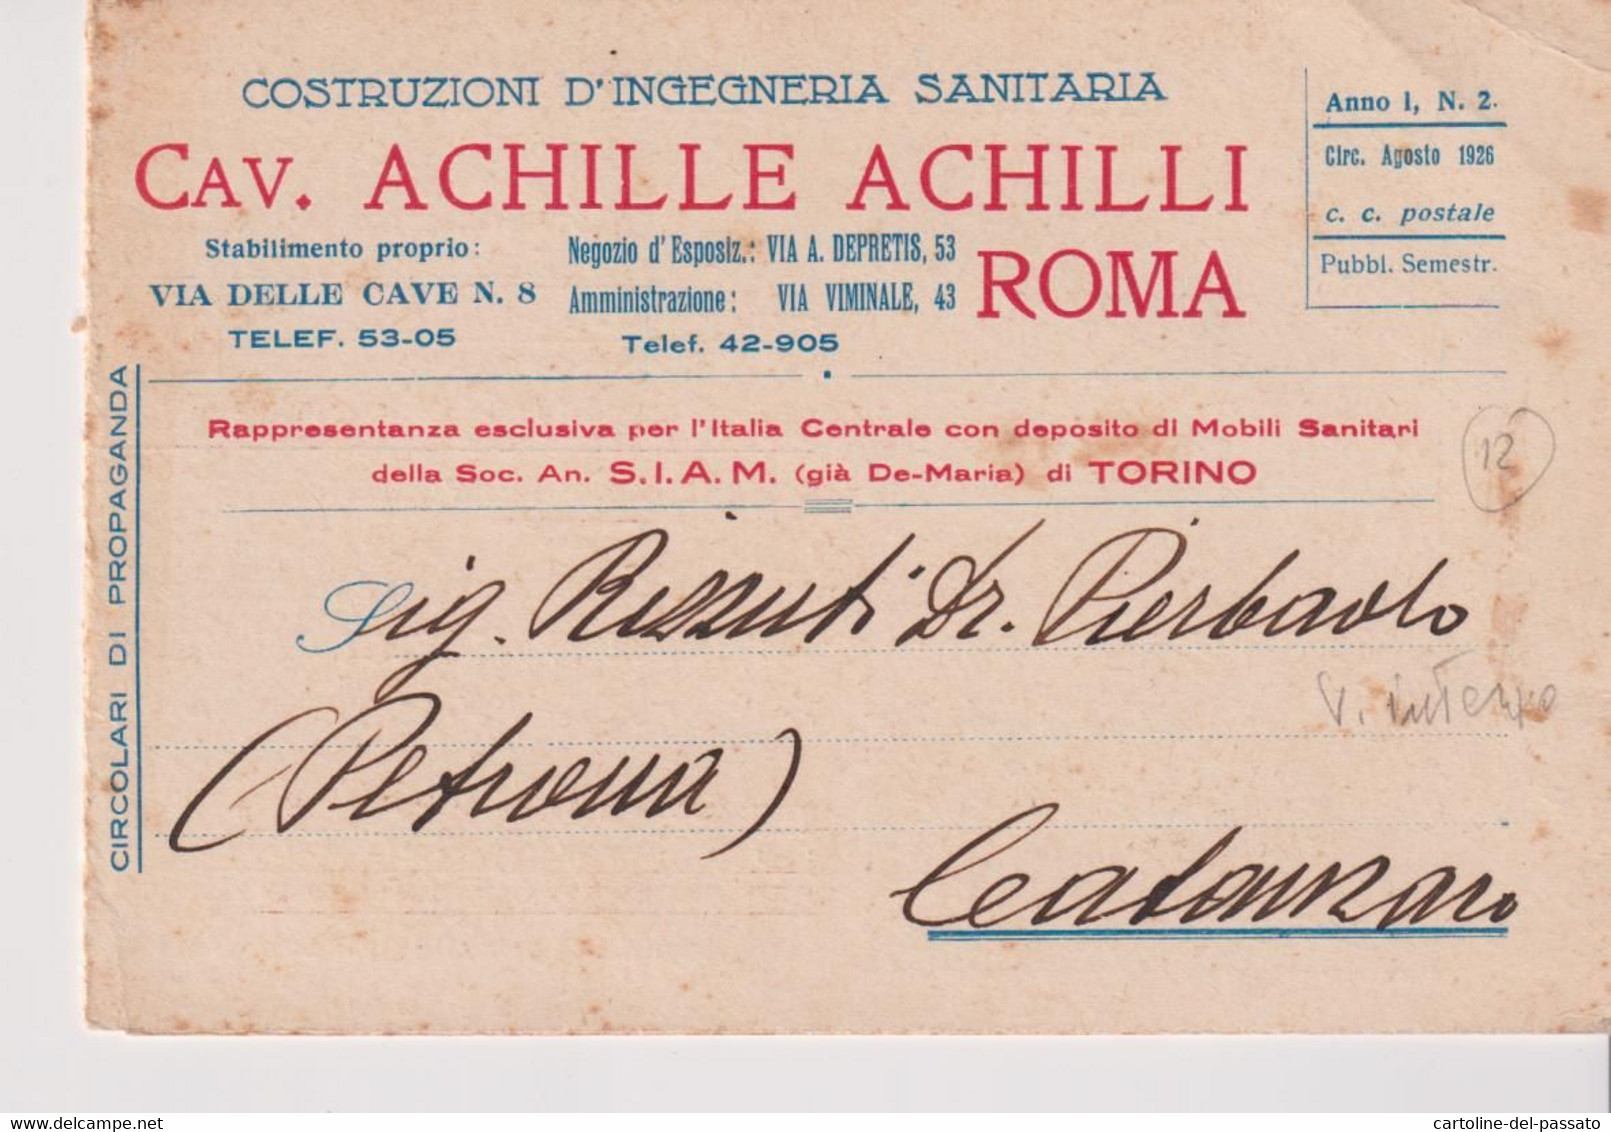 COSTRUZIONI D'INGEGNERIA SANITARIA
CAV. ACHILLE ACHILLI
ROMA
Stabilimento proprio:
VIA DELLE CAVE N. 8
TELEF. 53-05
Negozio d'Esposiz.: VIA A. DEPRETIS, 53
Amministrazione: VIA VIMINALE, 43
Telef. 42-905
Anno I, N. 2.
Circ. Agosto 1926
c. c. postale
Pubbl. Semestr.
CIRCOLARI DI PROPAGANDA
Rappresentanza esclusiva per l'Italia Centrale con deposito di Mobili Sanitari
della Soc. An. S.I.A.M. (già De-Maria) di TORINO
12
Sig. Rizzuti Dr. Pierpaolo
V. interno
(Petrona)
Catanzaro
cartoline-del-passato
delcampe.net